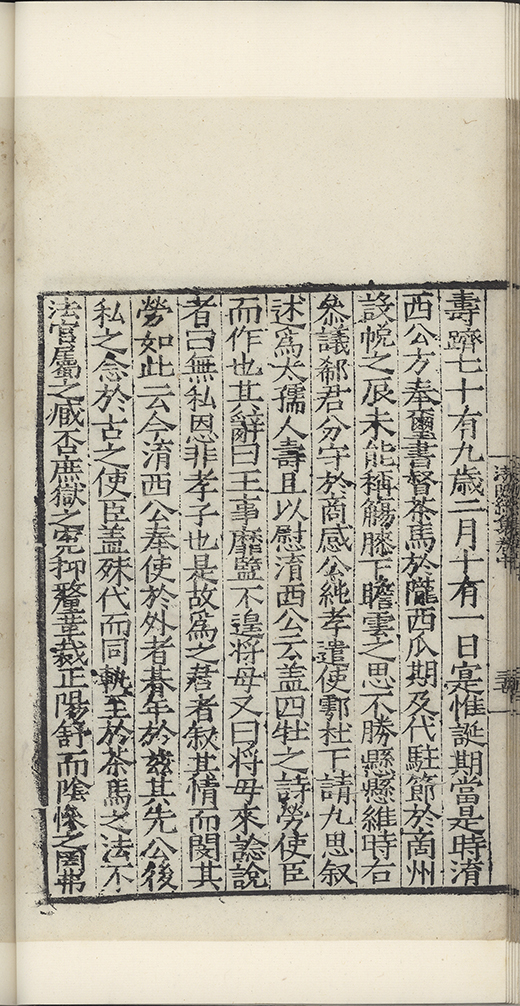 壽躋七十有九歲二月十有一日寔惟誕期當是時淯
西公方奉璽書督茶馬於隴西瓜期及代駐節於商州
設帨之辰未能稱觴膝下瞻雲之思不勝懸懸維時右
叅議郗君分守於商感公純孝遣使鄠杜下請九思叙
述為太孺人壽且以慰淯西公云盖四牡之詩勞使臣
而作也其辭曰王事靡盬不遑将母又曰将母來諗說
者曰無私恩非孝子也是故為之君者叙其情而閔其
勞如此云今淯西公奉使於外者朞年於茲其先公後
私之念於古之使臣盖殊代而同執至於茶馬之法不
法官屬之臧否庶獄之寃抑釐革裁正陽舒而隂惨之罔弗
渼陂續集卷中